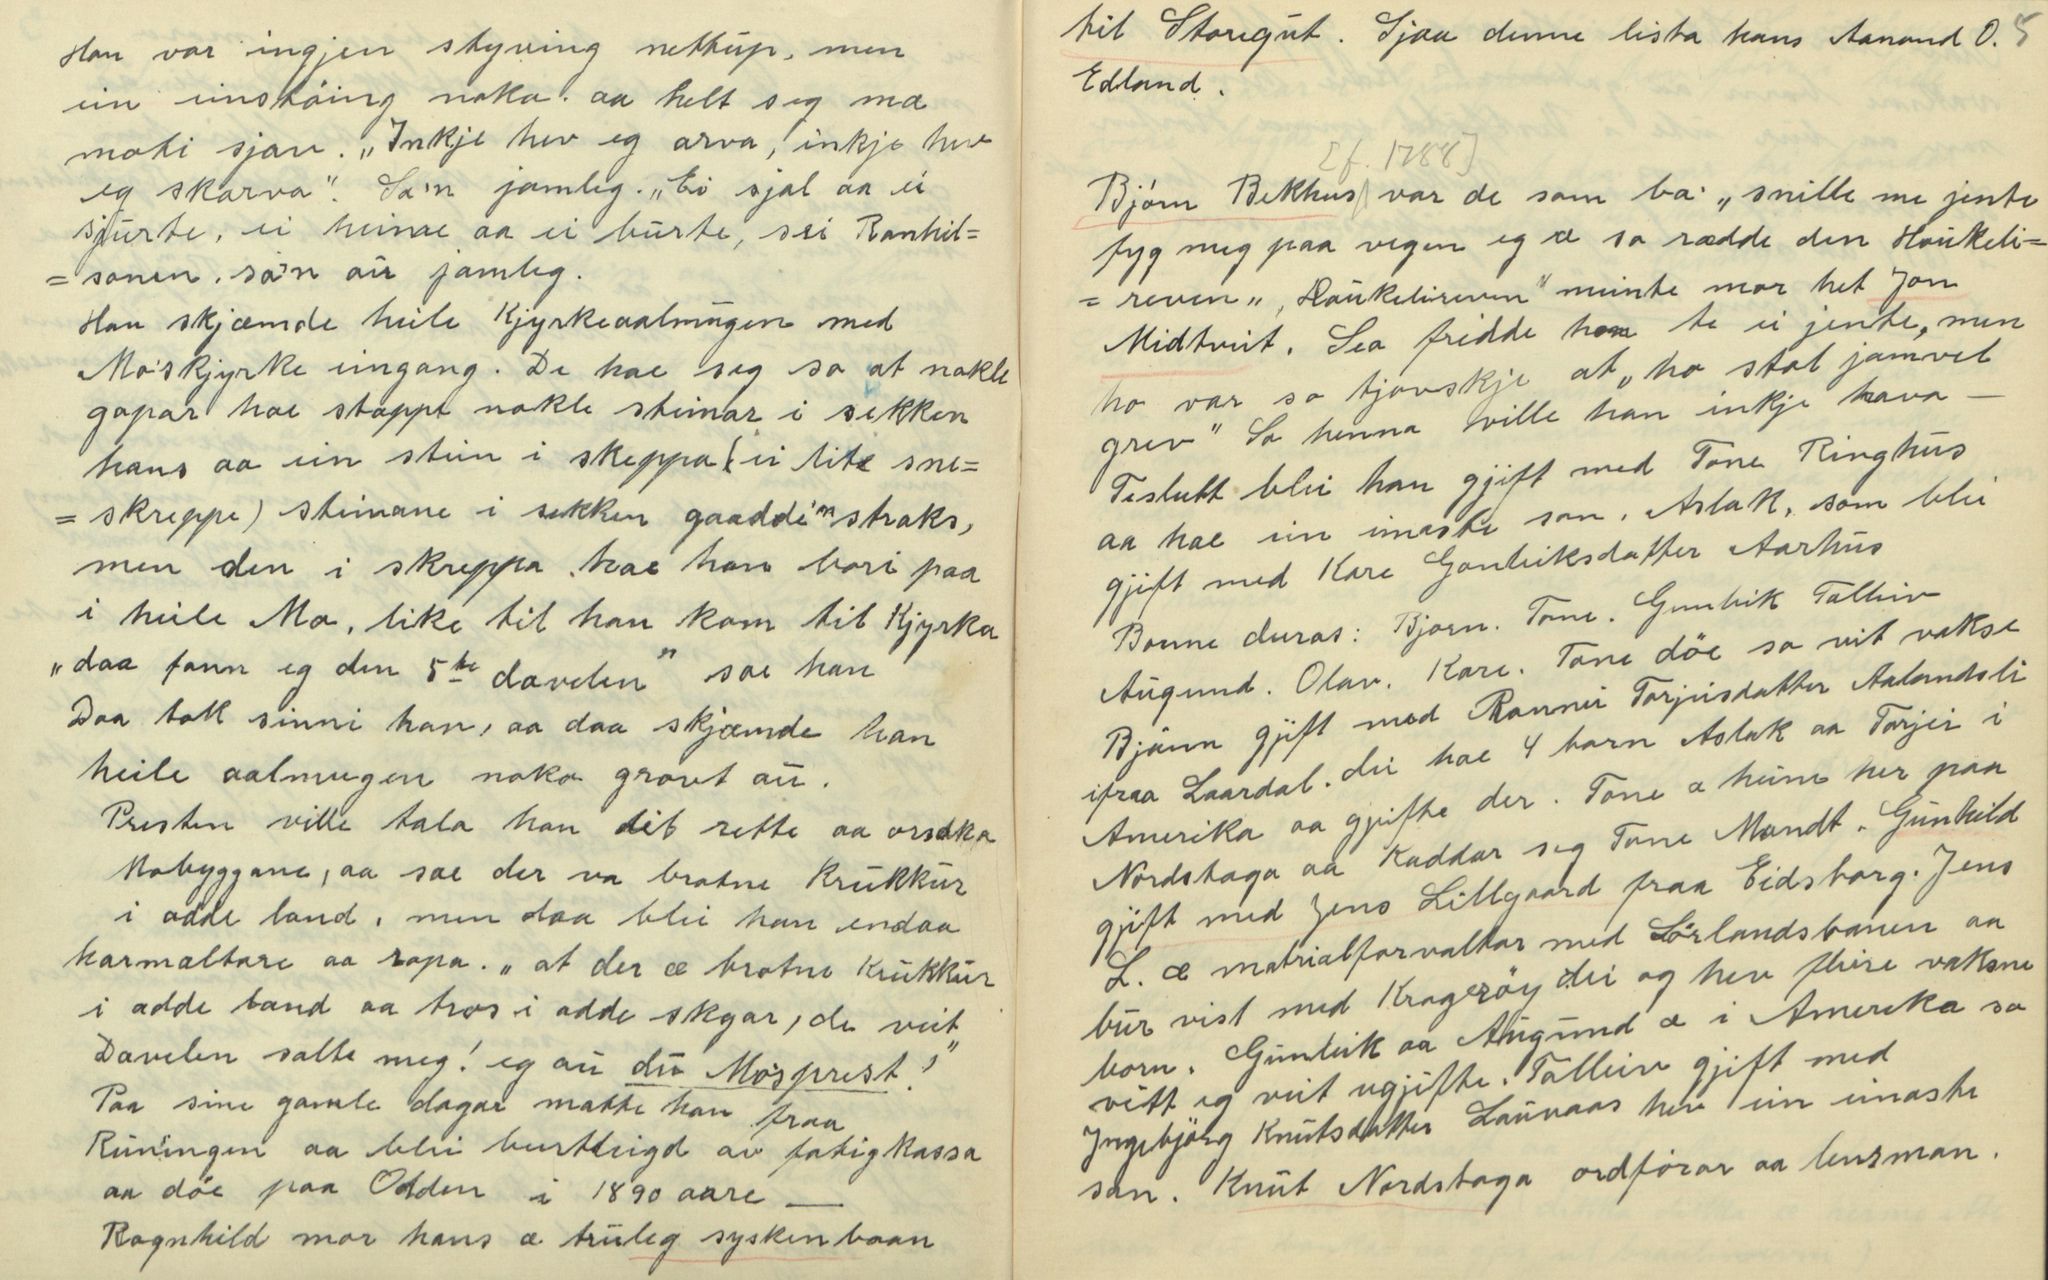 Han var ingjen styving nettup, men
ein einstöing noko. aa helt seg mæ
moti sjau. „Inkje hev eg arva, inkje hev
eg skarva". Sa'n jamleg. „Ei sjal aa ei
sjurte, ei heime aa ei burte, sei Ranhil=
= sonen. sa'n au jamleg.
Han skjæmde heile Kjyrkeaalmugen med
Mo'skjyrke eingang. De hae seg so at nokle
gapar hae stappt nokle steinar i sekken
hans aa ein stein i skeppa (ei lite sne=
= skreppe) steinane i sekken gaadde'n straks,
men den i skreppa hae han bori paa
i heile Mo, like til han kom til Kjyrka
„daa fann eg den 5te davelen" sae han
Daa tok sinni han, aa daa skjæmde han
heile aalmugen noko grovt au.
Presten ville tala han tit rette aa orsaka
Mobyggane, aa sae der va brotne Krukkur
i adde land, men daa blei han endaa
harmaltare aa ropa. „at der æ brotne Krukkur
i adde land aa tros i adde skgar, de veit
Davelen salte meg! eg au du Mo'sprest!"
Paa sine gamle dagar matte han fraa
Runingen aa blei burtleigd av fatigkassa
aa döe paa Odden i 1890 aare —
Ragnhild mor hans æ truleg syskenbaan
til Storegut. Sjaa denne lista hans Aanand O. 5
Edland.
[f. 1788]
Björn Bekhus var de som ba: „snille me jente
fyg meg paa vegen eg æ so rædde den Haukeli=
= reven„ „Haukelireven" meinte mor het Jon
Midtveit. Sea fridde han te ei jente, men
ho var so tjovskje at „ho stal jamvel
grev" So henna ville han inkje hava —
Teslutt blei han gjift med Tone Ringhus
aa hae ein einaste son, Aslak, som blei
gjift med Kare Gonleiksdatter Aarhus
Bonne deras: Bjorn. Tone. Gunleik Talleiv
Augund. Olav. Kare. Tone döe so vit vakse
Björn gjift med Rannei Torjeisdatter Aalandsli
ifraa Laardal. dei hae 4 born Aslak aa Torjei i
Amerika aa gjifte der. Tone æ heime her paa
Nordstaga aa kaddar seg Tone Mandt. Gunhild
gjift med Jens Lillgaard fraa Eidsborg. Jens
L. æ matrialforvaltar med Sörlandsbanen aa
bur vist med Krageröy dei og hev fleire vaksne
born. Gunleik aa Augund æ i Amerika so
vitt eg veit ugjifte. Talleiv gjift med
Ingebjörg Knutsdatter Lauvaas hev ein einaste
son. Knut Nordstoga ordförar aa lensman.